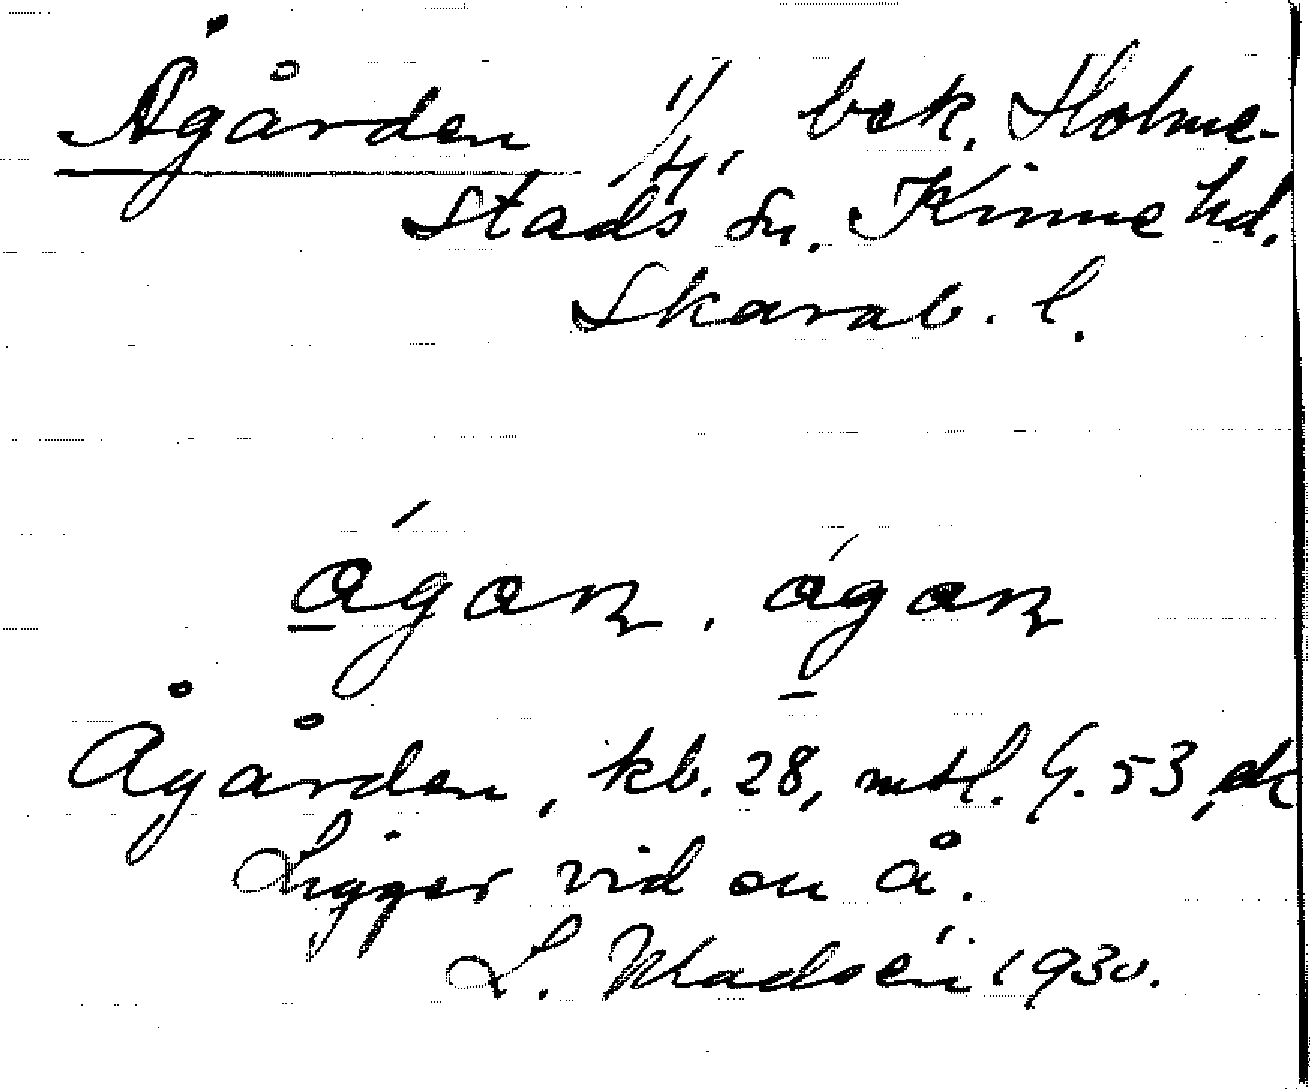 Ågården 1/4, bek. Holme-
stads sn. Kinne hd.
Skarab. l.
ågaɳ, ågaɳ
Ågården, kb. 28, mtl. G. 53, ek
Ligger vid en å.
L. Madsén 1930.